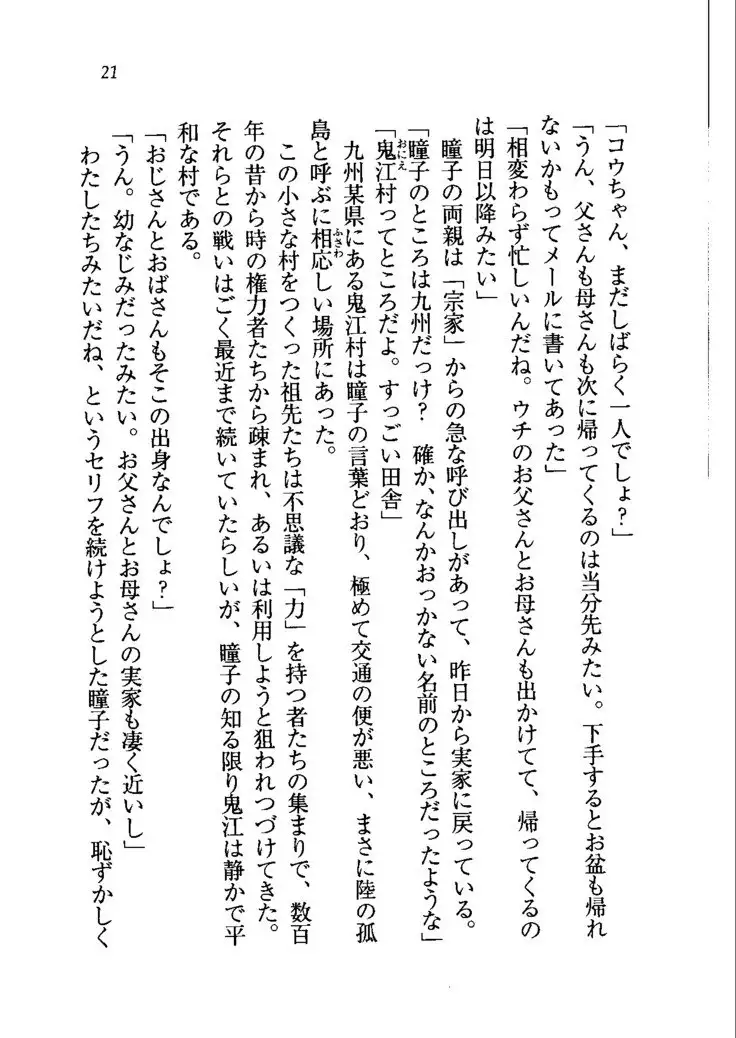 21
「コウちゃん、まだしばらく一人でしょ？」
「うん、父さんも母さんも次に帰ってくるのは当分先みたい。下手するとお盆も帰れ
ないかもってメールに書いてあった」
「相変わらず忙しいんだね。ウチのお父さんとお母さんも出かけてて、帰ってくるの
は明日以降みたい」
瞳子の両親は「宗家」からの急な呼び出しがあって、昨日から実家に戻っている。
「瞳子のところは九州だっけ？　確か、なんかおっかない名前のところだったような」
「鬼江村ってところだよ。すっごい田舎」
おにえ
九州某県にある鬼江村は瞳子の言葉どおり、極めて交通の便が悪い、まさに陸の孤
島と呼ぶに相応しい場所にあった。
ふさわ
この小さな村をつくった祖先たちは不思議な「力」を持つ者たちの集まりで、数百
年の昔から時の権力者たちから疎まれ、あるいは利用しようと狙われつづけてきた。
それらとの戦いはごく最近まで続いていたらしいが、瞳子の知る限り鬼江は静かで平
和な村である。
「おじさんとおばさんもそこの出身なんでしょ？」
「うん。幼なじみだったみたい。お父さんとお母さんの実家も凄く近いし」
わたしたちみたいだね、というセリフを続けようとした瞳子だったが、恥ずかしく